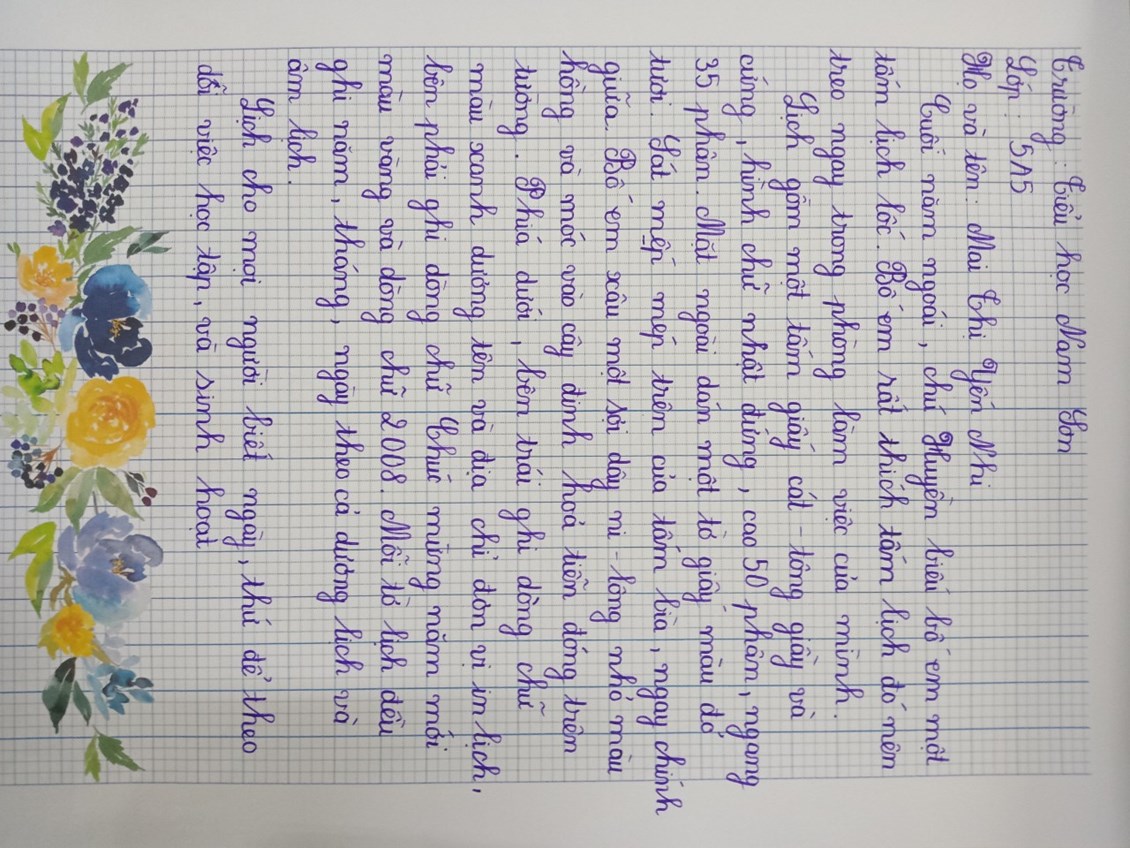 Trường : Tiểu học Nam Sơn
Lớp : 5A5
Họ và tên : Mai Thị Yến Nhi
Cuối năm ngoái, chú Huyền biếu bố em một
tấm lịch lốc. Bố em rất thích tấm lịch đó nên
treo ngay trong phòng làm việc của mình.
Lịch gồm một tấm giấy cát-tông giầy và
cứng, hình chữ nhật đứng, cao 50 phân, ngang
35 phân. Mặt ngoài dán một tờ giấy màu đỏ
tươi. Sát mện mép trên của tấm bìa, ngay chính
giữa. Bố em xâu một sợi dây ni-lông nhỏ màu
hồng và móc vào cây đinh hoả tiễn đóng trên
tường. Phía dưới, bên trái ghi dòng chữ
màu xanh dương tên và địa chỉ đơn vị in lịch,
bên phải ghi dòng chữ Chúc mừng năm mới
màu vàng và dòng chữ 2008. Mỗi tờ lịch đều
ghi năm, tháng, ngày theo cả dương lịch và
âm lịch.
Lịch cho mọi người biết ngày, thứ để theo
dõi việc học tập, và sinh hoạt